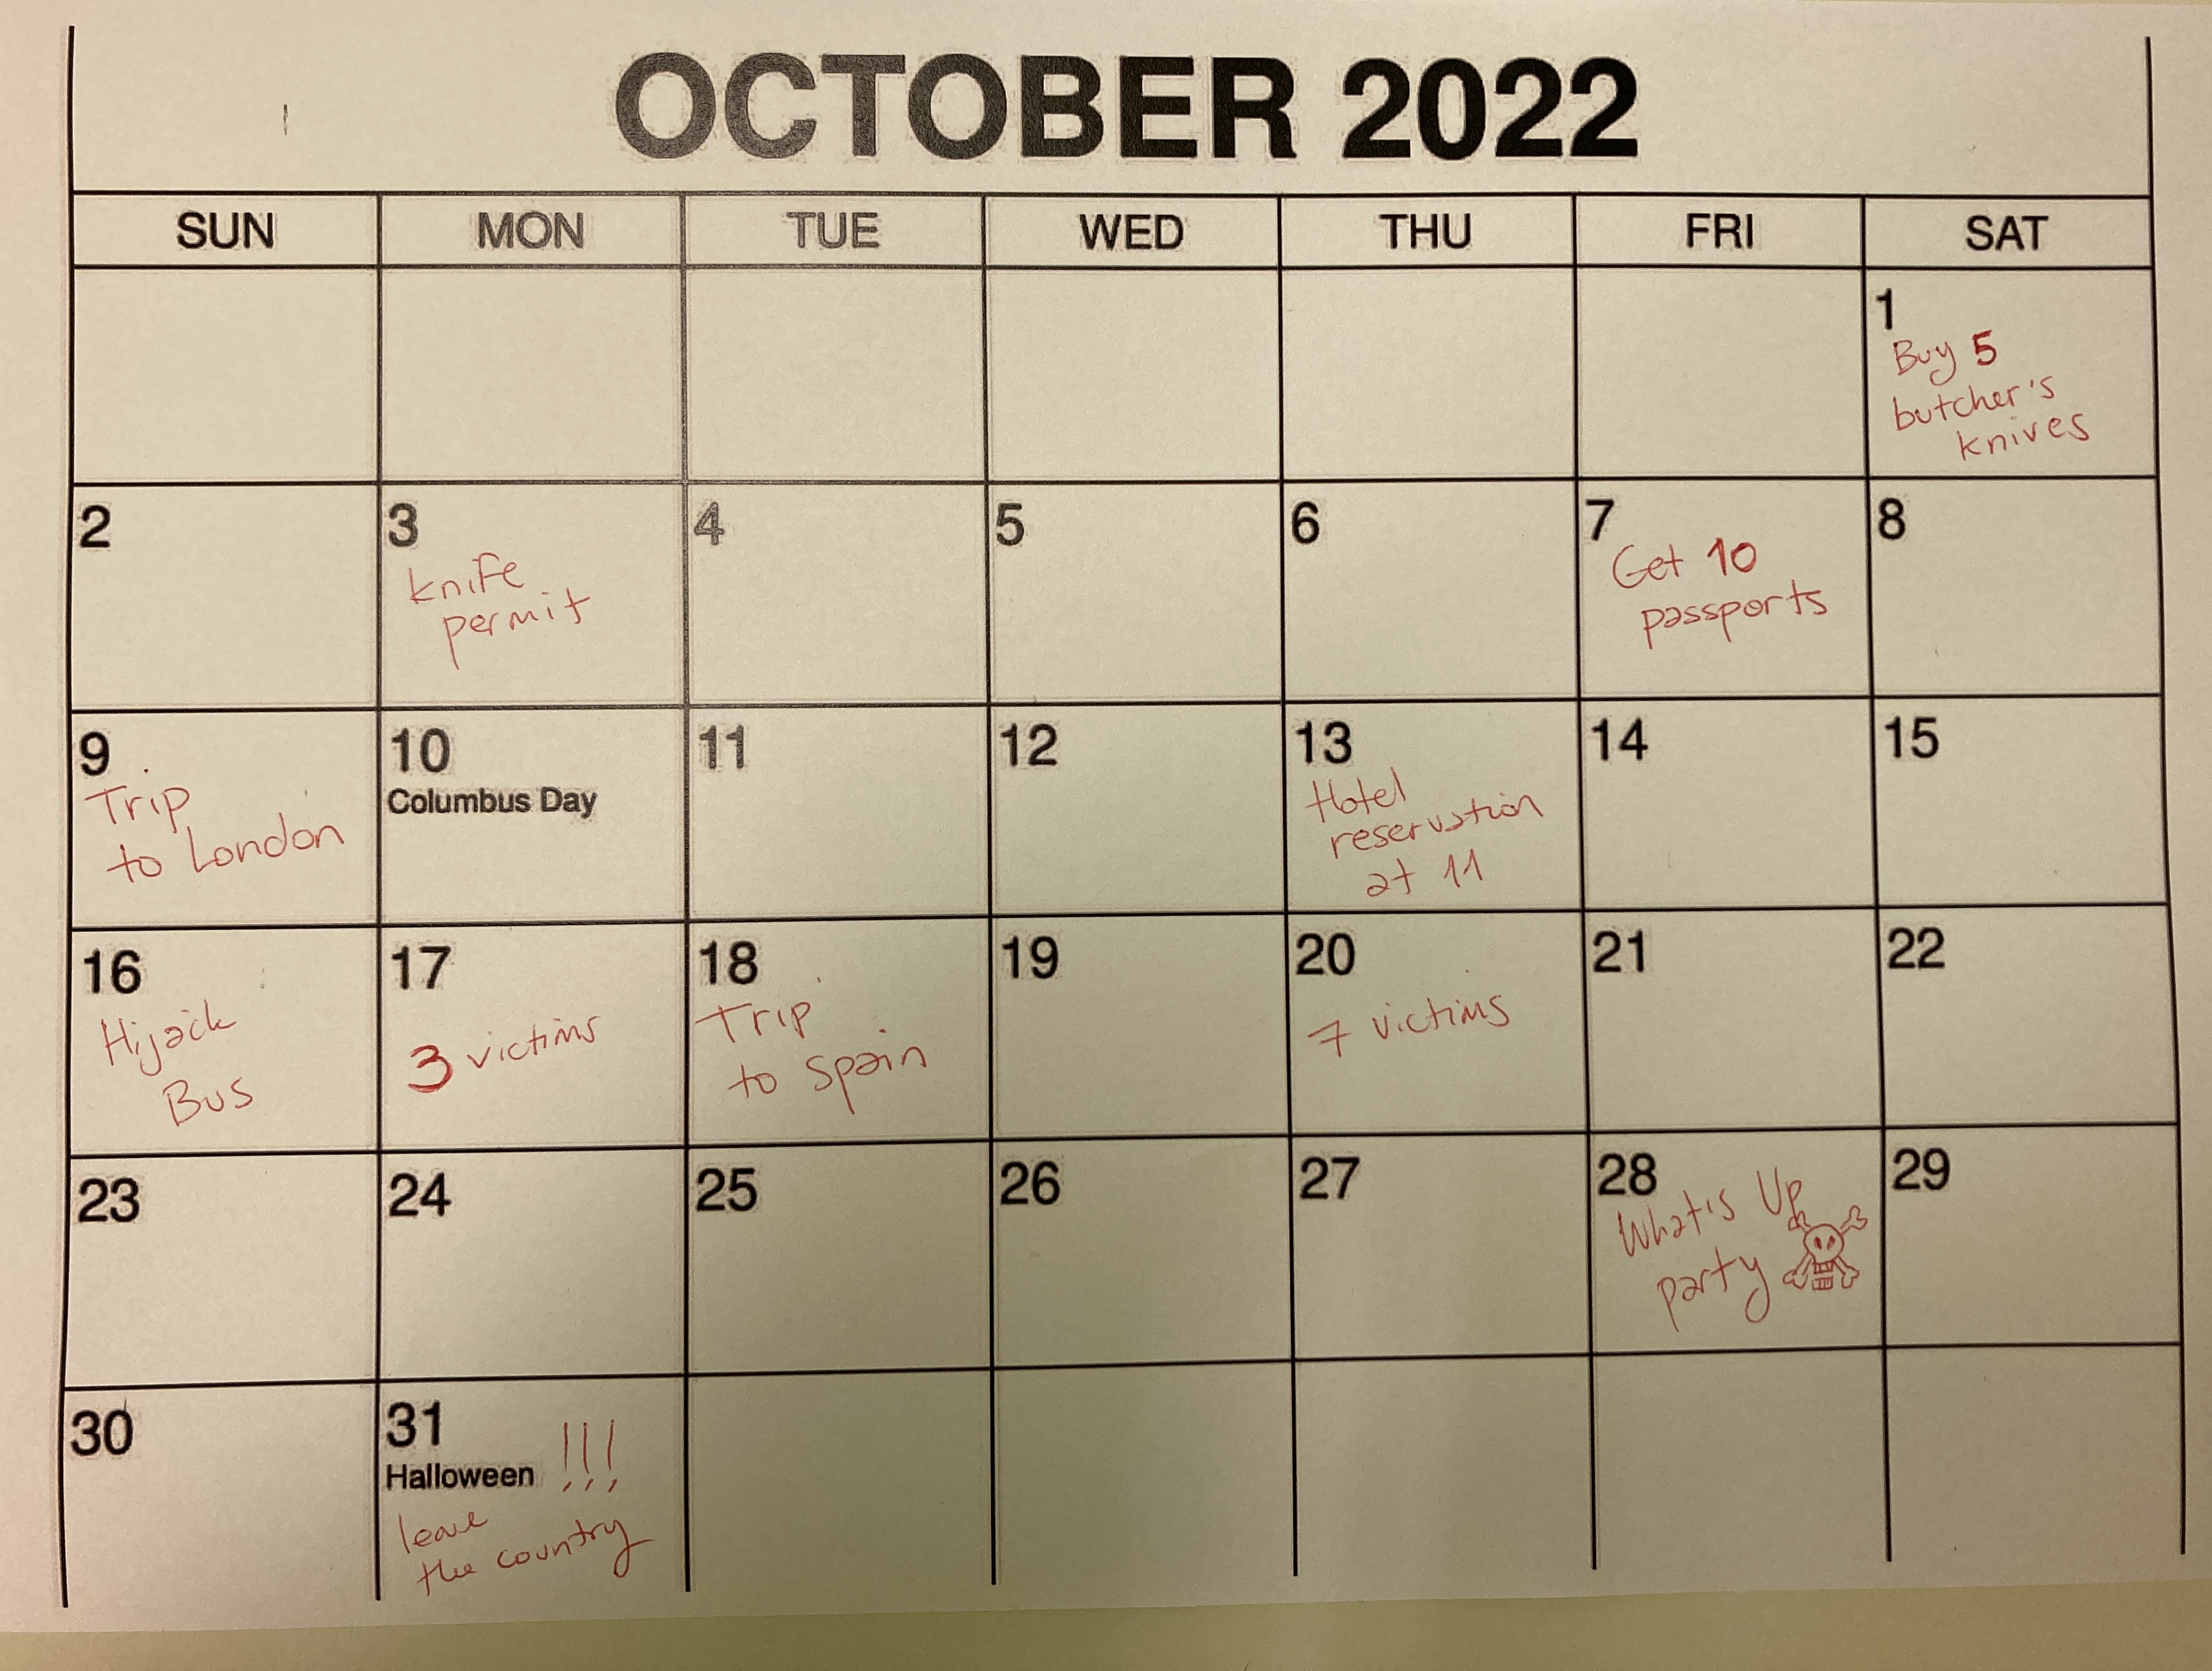 OCTOBER 2022
SUN MON TUE WED THU FRI SAT
1
Buy 5
butcher's
knives
2
3
knife
permit
4
5
6
7
Get 10
passports
8
9
Trip
to London
10
Columbus Day
11
12
13
Hotel
reservation
at 11
14
15
16
Hijack
Bus
17
3 victims
18
Trip
to Spain
19
20
7 victims
21
22
23
24
25
26
27
28
What's Up
party
29
30
31
Halloween !!!
leave
the country